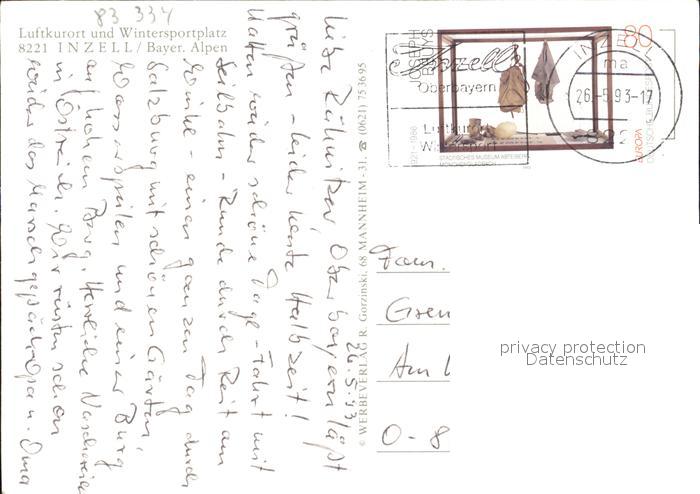 83 334
Luftkurort und Wintersportplatz
8221 INZELL / Bayer. Alpen
Liebe Rähnitzer, Oberbayern läßt
grüßen - leider heute Halbzeit!
Hatten wieder schöne Tage - Fahrt mit
Seilbahn - Runde durch Reit am
Winkl - einen ganzen Tag durch
Salzburg mit schönen Gärten,
Wasserspielen und einer Burg
auf hohem Berg. Herrliche
in Östreich. Wir rüsten schon
wieder das Marschgepäck Opa u. Oma
26.5.93
© WERBEVERLAG R. Gorzinski, 68 MANNHEIM-31, ☎ (0621) 753695
JOSEPH
BEUYS
1921-1986
Inzell
Oberbayern
Luftkurort
STÄDTISCHES MUSEUM ABTEIBERG
MÖNCHENGLADBACH
80
EUROPA
DEUTSCHE BUNDESPOST
INZELL
ma
26.-5.93-17
8221
Fam.
Am
O-8
privacy protection
Datenschutz